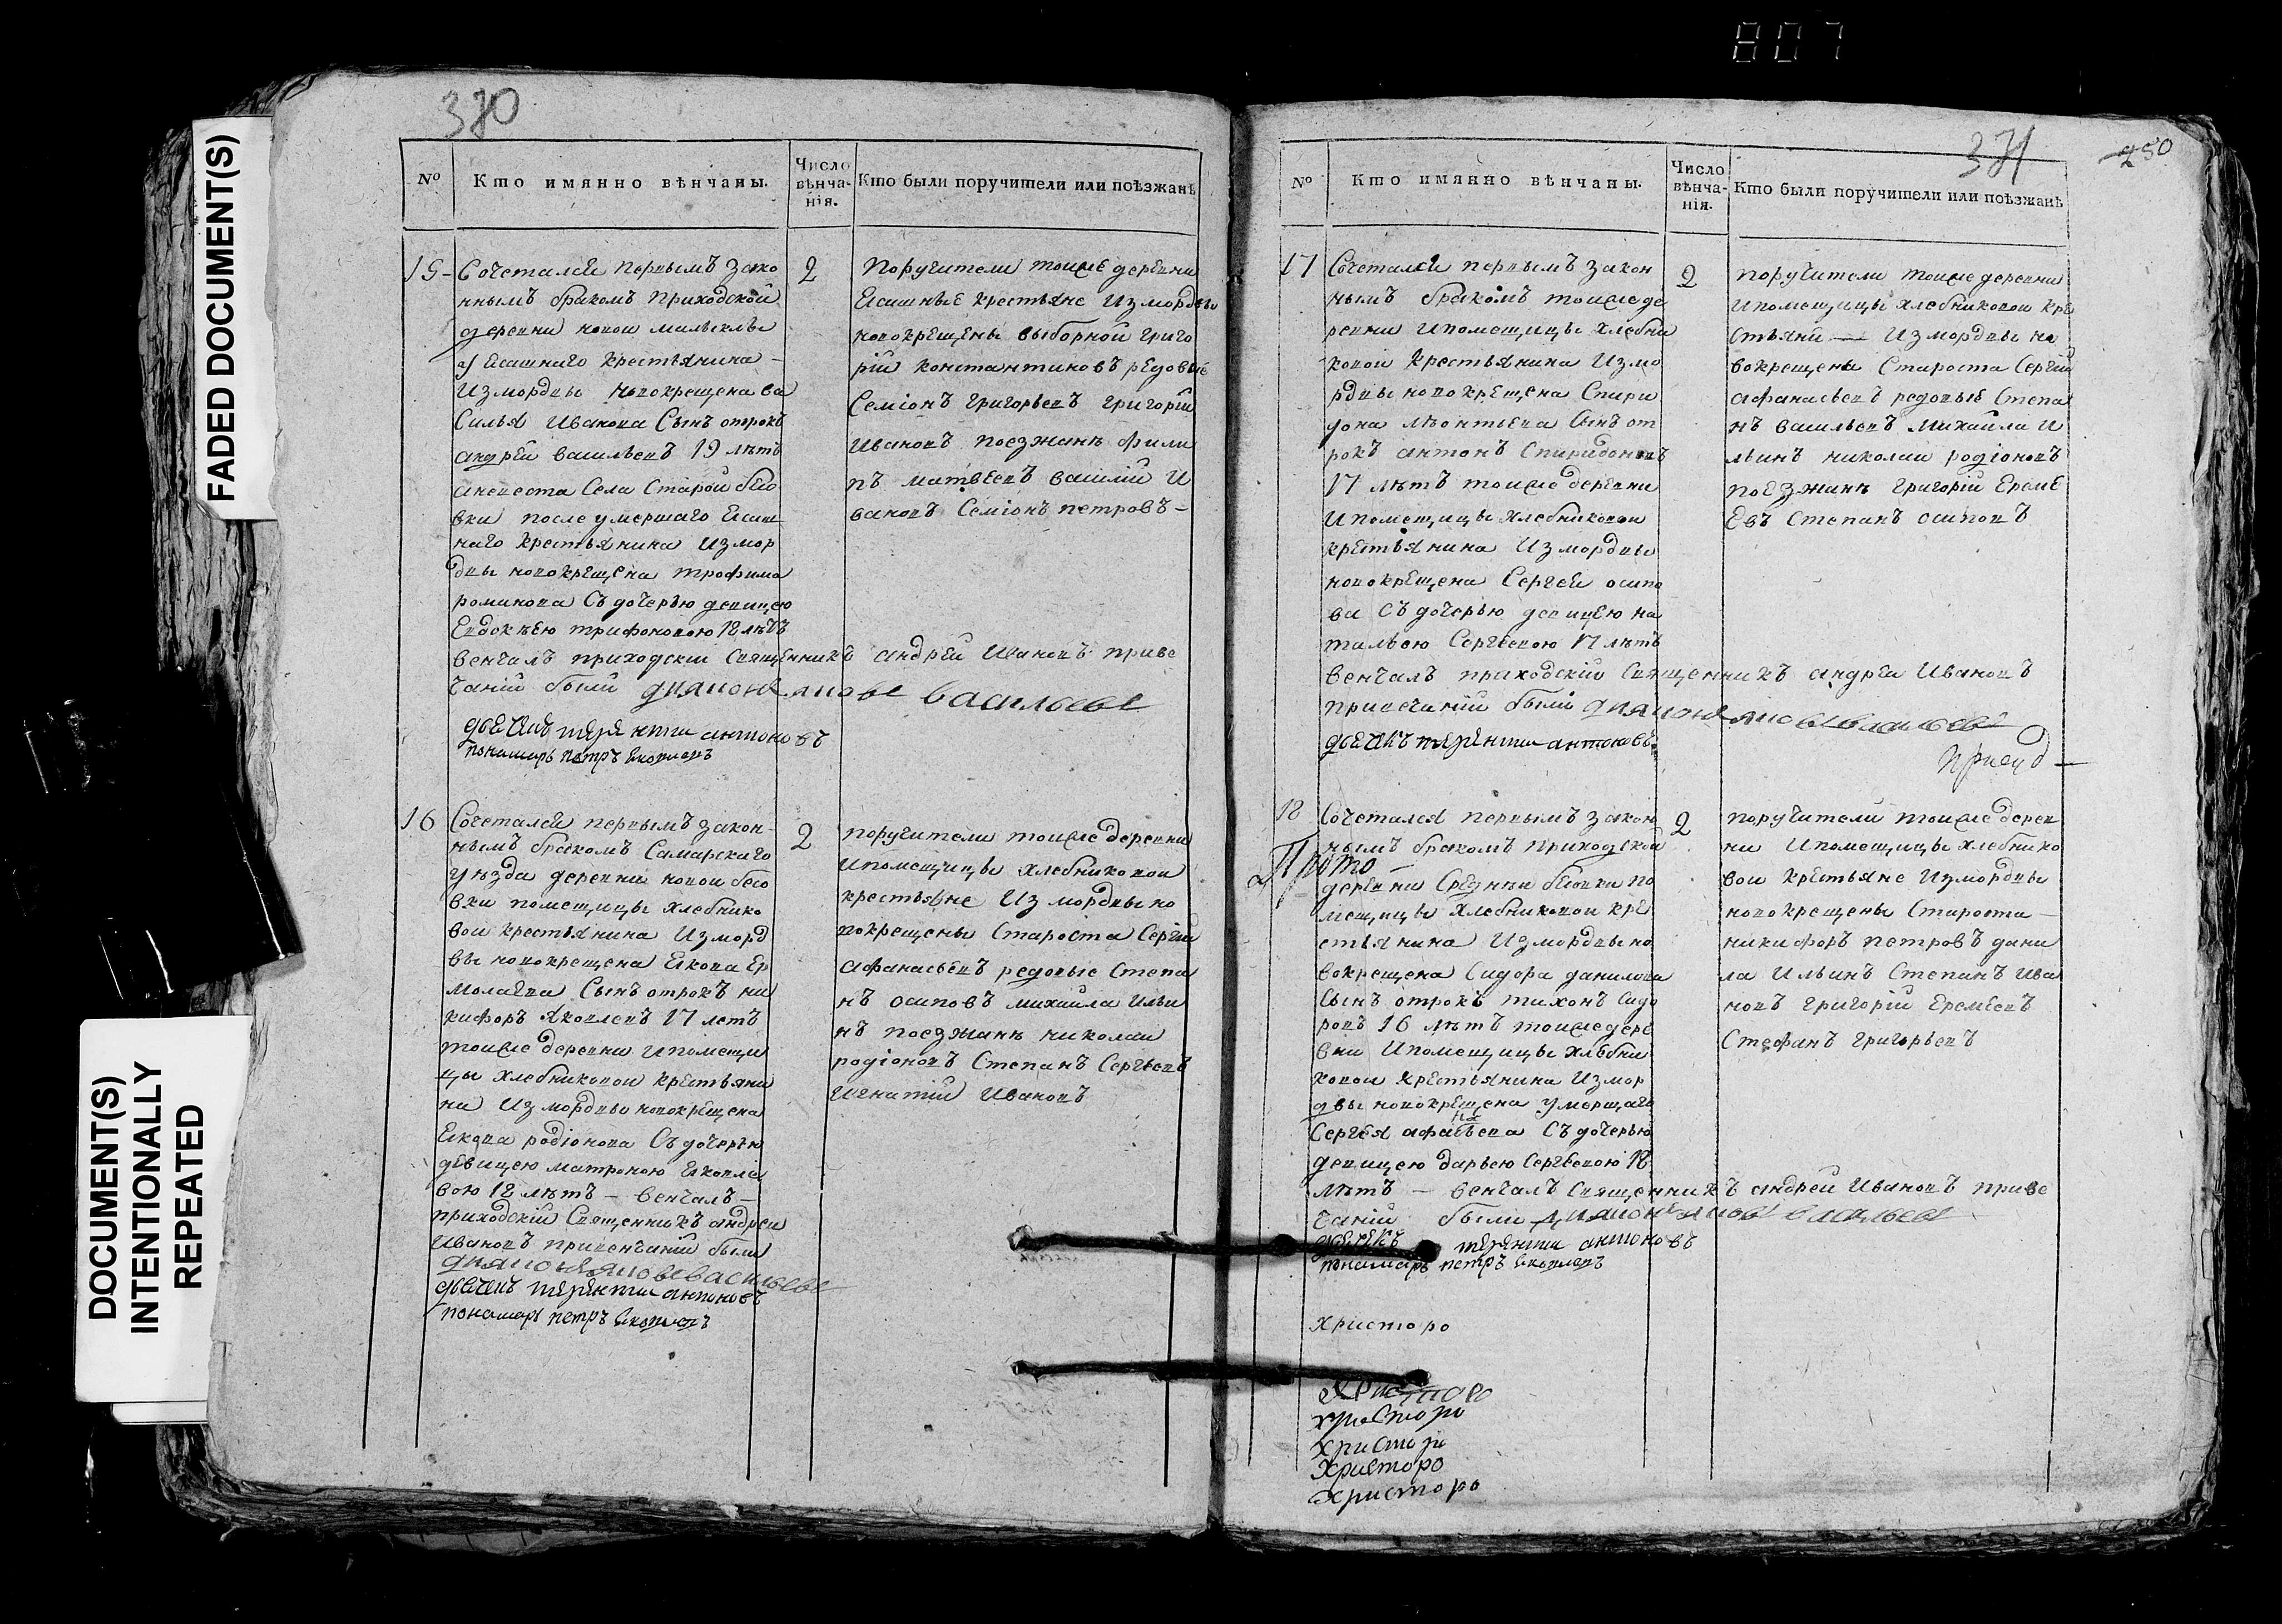 807
FADED DOCUMENT(S)
DOCUMENT(S)
INTENTIONALLY
REPEATED
370
№
Кто имянно вѣнчаны.
Число вѣнча-нія.
Кто были поручители или поѣзжанѣ
15
Сочетался первымъ зако
ннымъ бракомъ приходской
деревни новои
у Ясашнаго крестьянина
Измордвы новокрещена Ва
Силья Иванова Сынъ отрокъ
андрей васильевъ 19 лѣтъ
аневеста Села Старой бесо
вки после умершаго Ясаш
наго крестьянина Измор
двы новокрещена трофима
романова Съ дочерью девицею
Евдокѣею трифоновою 18 лѣтъ
венчалъ приходскіи Священникъ андрей Ивановъ приве
чаніи были васильевъ
дьечекъ терянтии антоновъ
пономарь петръ Яковлевъ
2
Поручители тоиже деревни
Ясашные крестьяне Измордвы
новокрещены выборной григо
рій константиновъ редовые
Семіонъ григорьевъ григорій
Ивановъ поезжанѣ фили
пъ матвеевъ василій И
вановъ Семіонъ петровъ
16
Сочетался первымъ закон
нымъ бракомъ Самарскаго
уѣзда деревни новои бесо
вки помещицы хлебнико
вои крестьянина Изморд
вы новокрещена Якова Ер
молаева Сынъ отрокъ ни
кифоръ Яковлевъ 17 летъ
тоиже деревни Ипомещи
цы хлебниковои крестьяни
на Измордвы новокрещена
Якова родіонова Съ дочерью
девицею матроною Яковле
вою 18 лѣтъ – венчалъ –
приходскій Священникъ андреи
Ивановъ привенчаніи были
васильевъ
дьечекъ терянтии антоновъ
пономарь петръ Яковлевъ
2
поручители тоиже деревни
Ипомещицы хлебниковои
крестьяне Измордвы но
вокрещены Староста Сергій
афанасьевъ редовые Степа
нъ осиповъ михайла Ильи
нъ поезжанѣ николаи
родіоновъ Степанъ Сергѣевъ
Игнатій Ивановъ
371
250
№
Кто имянно вѣнчаны.
Число вѣнча-нія.
Кто были поручители или поѣзжанѣ
17
Сочетался первымъ закон
нымъ бракомъ тоиже де
ревни Ипомещицы хлебни
ковои крестьянина Измо
рдвы новокрещена Спири
дона лѣонтьева Сынъ от
рокъ антонъ Спиридоновъ
17 лѣтъ тоиже деревни
Ипомещицы хлебниковои
крестьянина Измордвы
новокрещена Сергея осипо
ва Съ дочерью девицею на
тальею Сергѣевою 17 лѣтъ
венчалъ приходскій Священникъ андреи Ивановъ
привечаніи были васильевъ
дьечекъ терянтии антоновъ
2
поручители тоиже деревни
Ипомещицы хлебниковои кре
стьяни — Измордвы но
вокрещены Староста Сергій
афанасьевъ редовые Степа
нъ васильевъ михаила И
льинъ николаи родіоновъ
поезжанѣ григоріи Ереме
Евъ Степанъ осиповъ
18
Сочетался первымъ закон
нымъ бракомъ приходской
Прото
деревни Средней бесовки по
мещицы хлебниковои кре
стьянина Измордвы но
вокрещена Сидора данилова
Сынъ отрокъ тихонъ Сидо
ровъ 16 лѣтъ тоиже дере
вни Ипомещицы хлебни
ковои крестьянина Измор
двы новокрещена умершаго
Сергѣя афанасьева Съ дочерью
девицею дарьею Сергѣевою 18
лѣтъ – венчалъ Священникъ андреи Ивановъ приве
чаніи были васильевъ
дьечекъ терянтии антоновъ
пономарь петръ Яковлевъ
2
поручители тоиже дерев
ни Ипомещицы хлебнико
вои крестьяне Измордвы
новокрещены Староста
никифоръ петровъ дани
ла Ильинъ Степанъ Ива
новъ григорій Еремѣевъ
Стефанъ григорьевъ
христоро
христоро
христоро
христоро
христоро
христоро